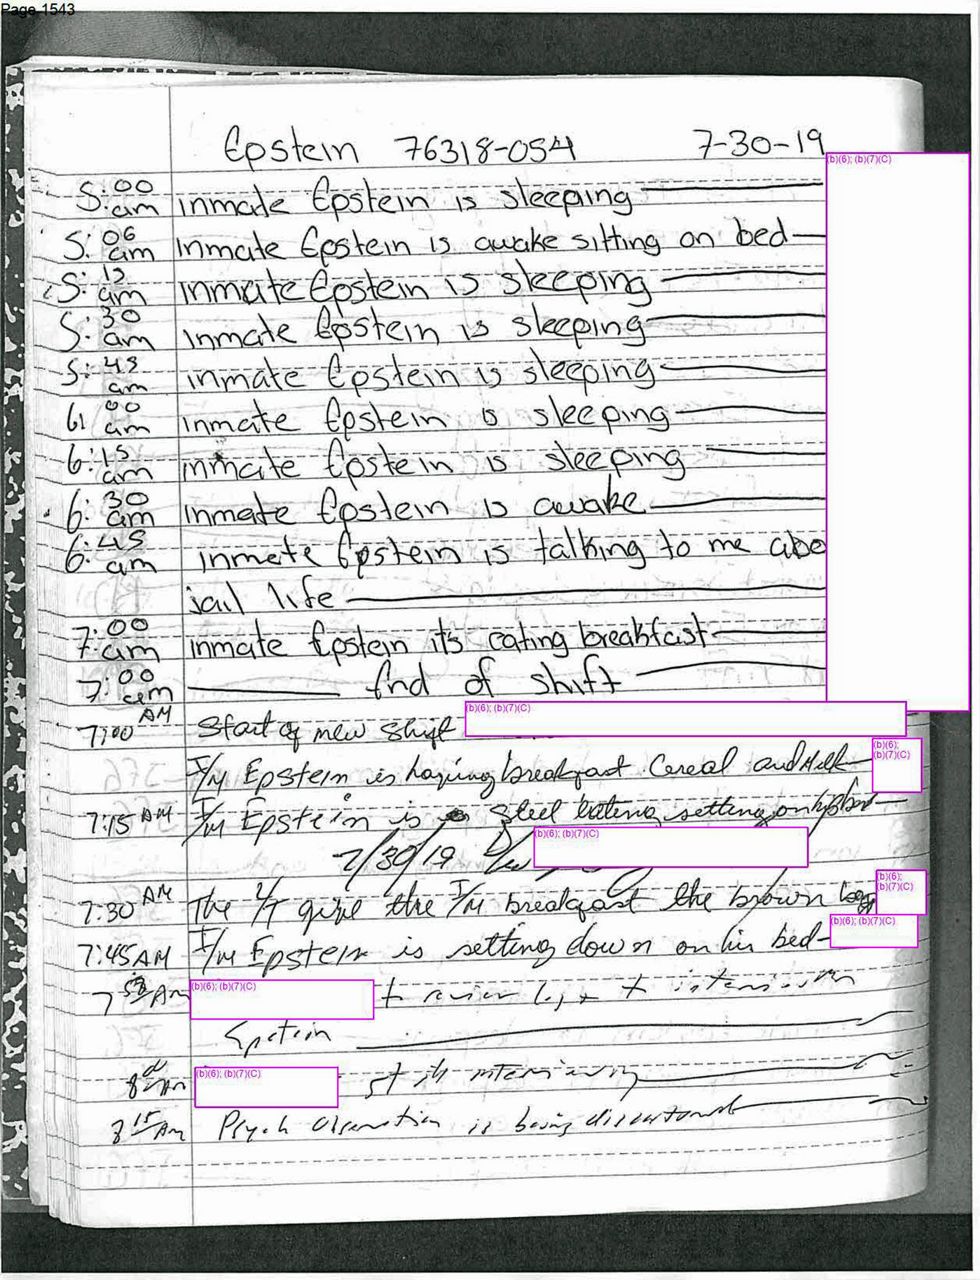 Page 1543
Epstein 76318-054 7-30-19
(b)(6); (b)(7)(C)
5:00 am inmate Epstein is sleeping
5:06 am inmate Epstein is awake sitting on bed
5:15 am inmate Epstein is sleeping
5:30 am inmate Epstein is sleeping
5:45 am inmate Epstein is sleeping
6:00 am inmate Epstein is sleeping
6:15 am inmate Epstein is sleeping
6:30 am inmate Epstein is awake
6:45 am inmete Epstein is talking to me abo
jail life
7:00 am inmate Epstein it's eating breakfast
7:00 am End of shift
(b)(6); (b)(7)(C)
7:00 AM Start of new shift
I/M Epstein is having breakfast Cereal and Milk (b)(6); (b)(7)(C)
7:15 AM I/M Epstein is steel eating setting on his bed
7/30/19 (b)(6); (b)(7)(C)
7:30 AM The I/M breakfast the brown bag (b)(6); (b)(7)(C)
7:45 AM I/M Epstein is setting down on his bed (b)(6); (b)(7)(C)
AM (b)(6); (b)(7)(C) to review log +
Epstein
8 00 Am (b)(6); (b)(7)(C) still interviewing
8 15 Am Psych observation is being discontinued